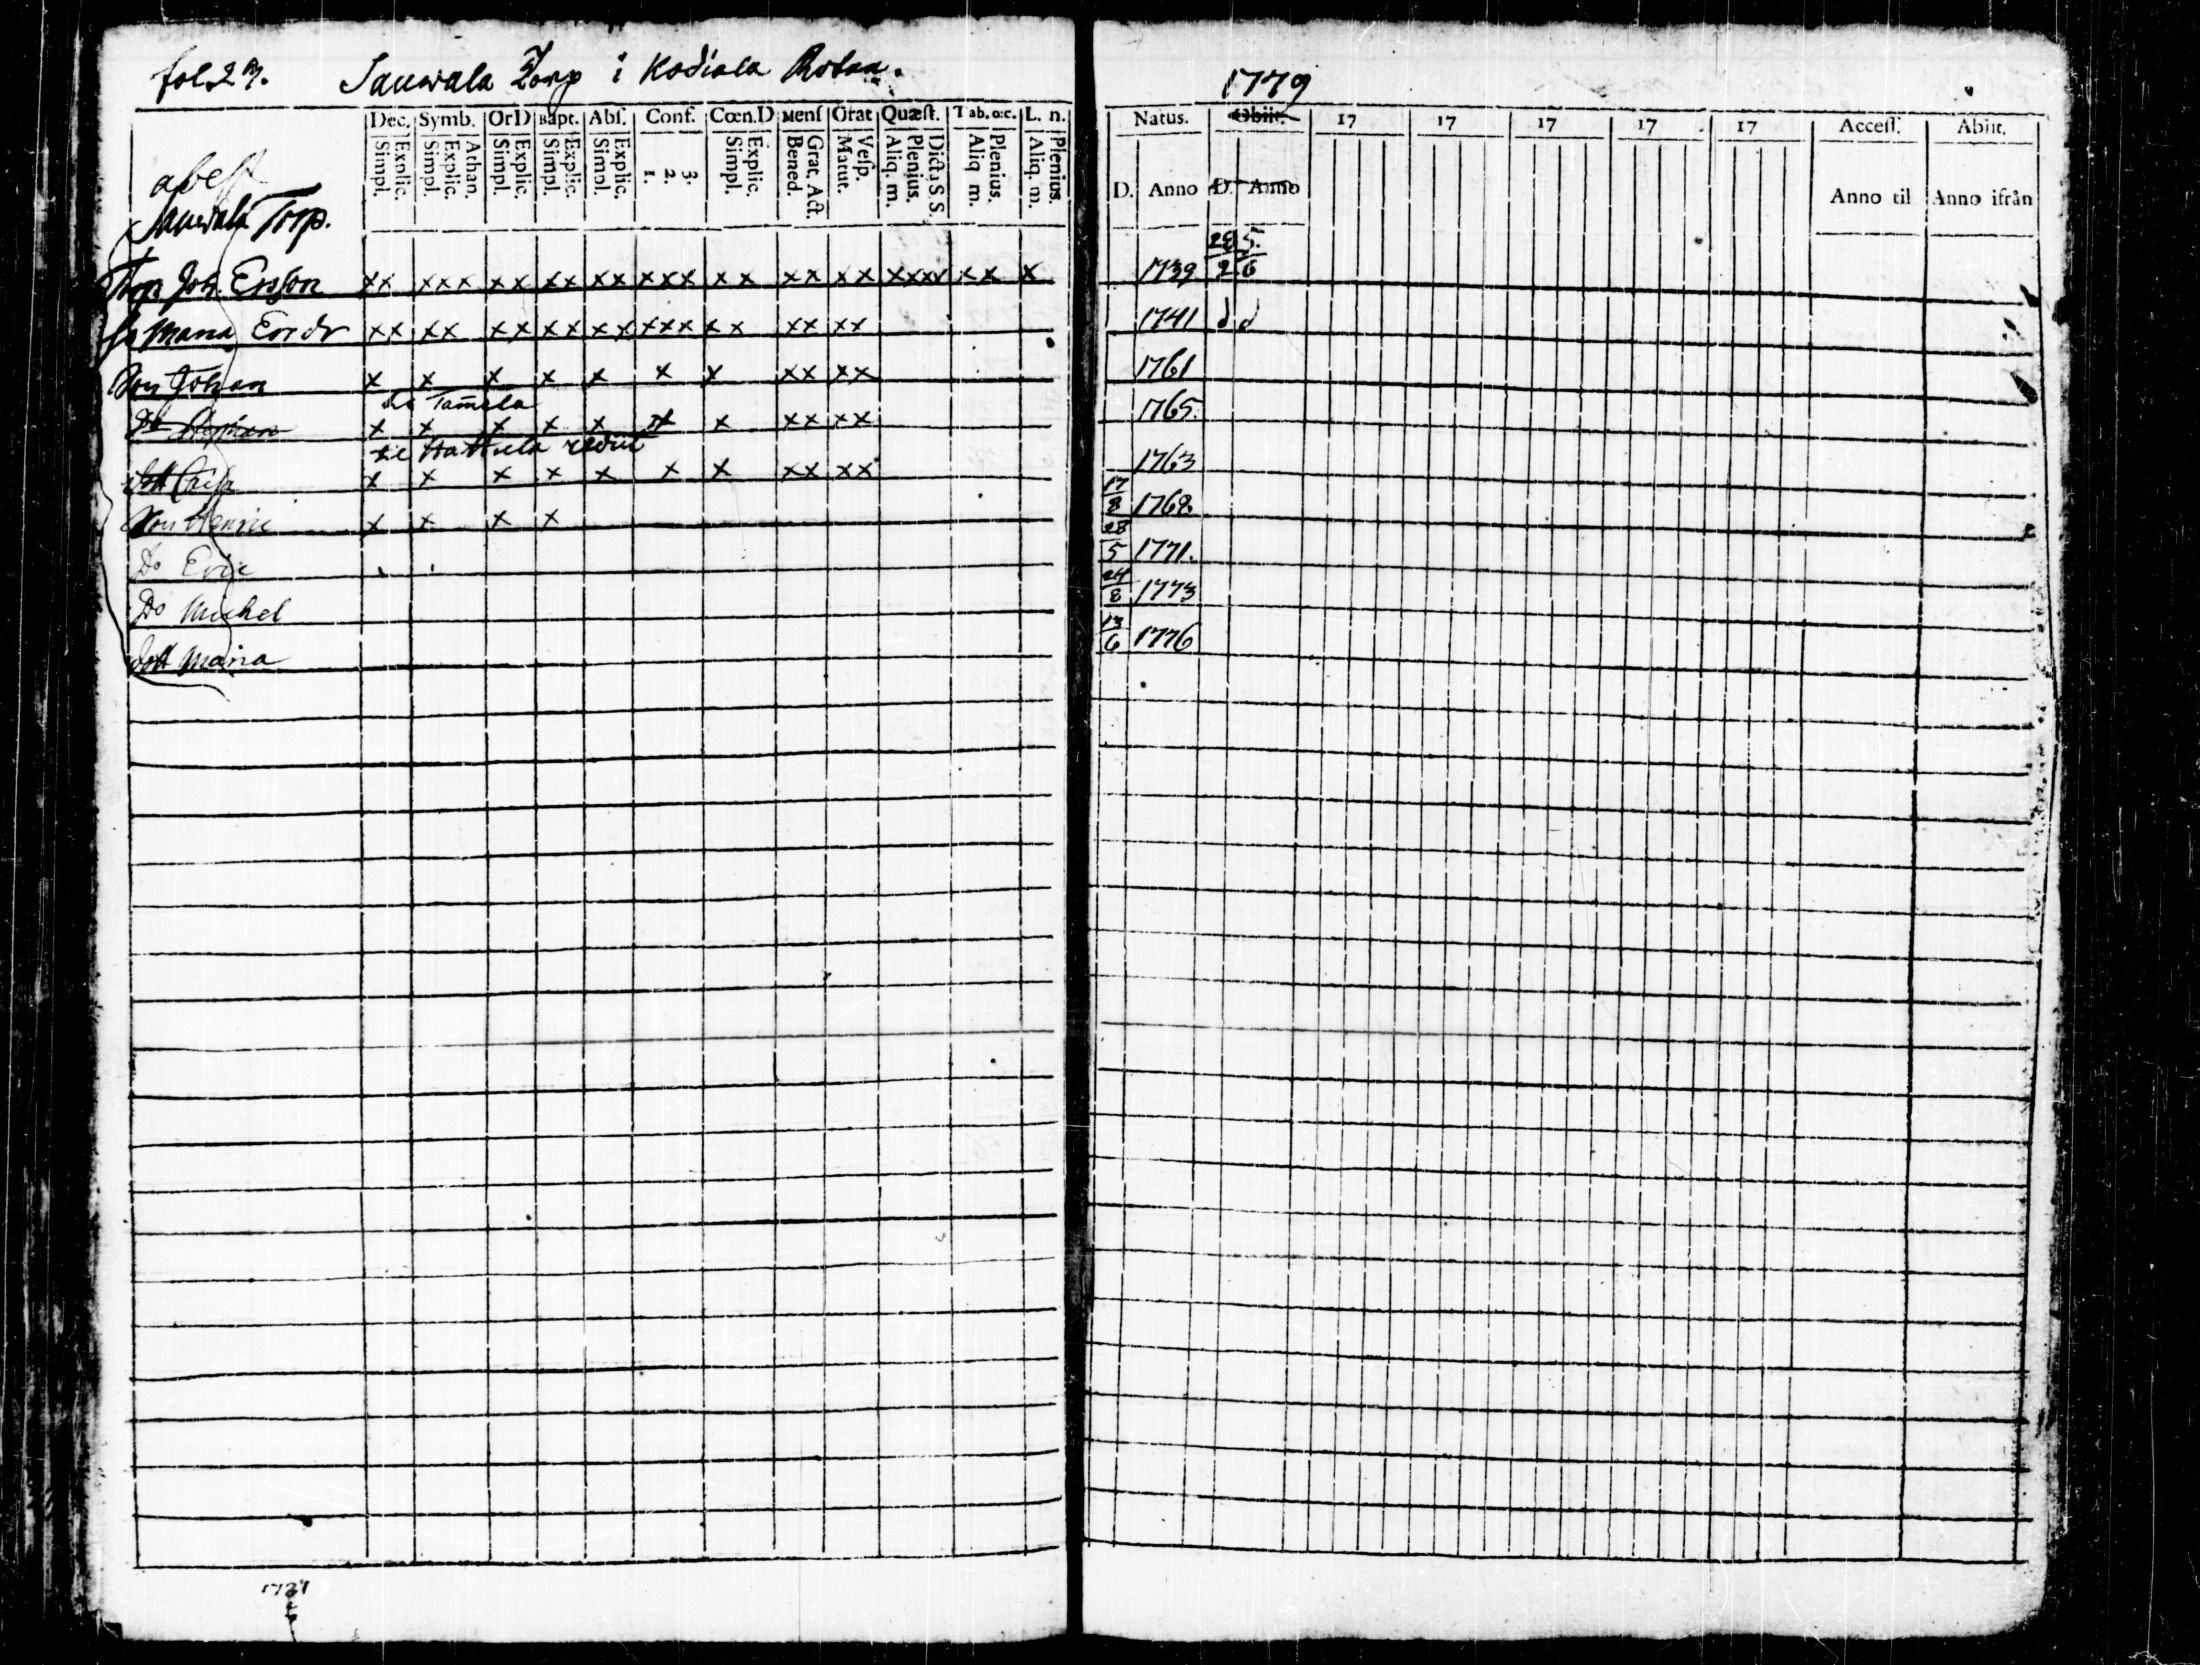 fol. 29. Sauwala Torp i Kodiala Rotan.
1779
Dec. Symb. OrD Bapt. Abs. Conf. Cœn.D Mens Grat Quæst. Tab. œc. L. n.
Explic. Simpl. Athan. Explic. Simpl. Explic. Simpl. Explic. Simpl. Explic. Simpl. 3. 2. 1. Explic. Simpl. Grat. Act. Bened. Vesp. Matut. Dicta S S. Plenius. Aliq. m. Plenius. Aliq m. Plenius. Aliq. m.
Natus. Obiit. 17 17 17 17 17 Access. Abiit.
D. Anno D. Anno Anno til Anno ifrån
abest
Sauwala Torp.
Torp. Joh. Ersson xx xxx xx xx xx xxx xx xx xx xxxx xx x 1739 28 5. 2 6
hu Maria Ersdr xx xx xx xx xx xxx xx xx xx 1741 d d
Son Johan x x x x x x x xx xx 1761
Tamela
Do x x x x x x x xx xx 1765.
Hattula rediit
Dott Caisa x x x x x x x xx xx 1763
Son Henric x x x x 17/8 1768.
Do Eric 28/5 1771.
Do Michel 24/8 1773
Dott Maria 13/6 1776